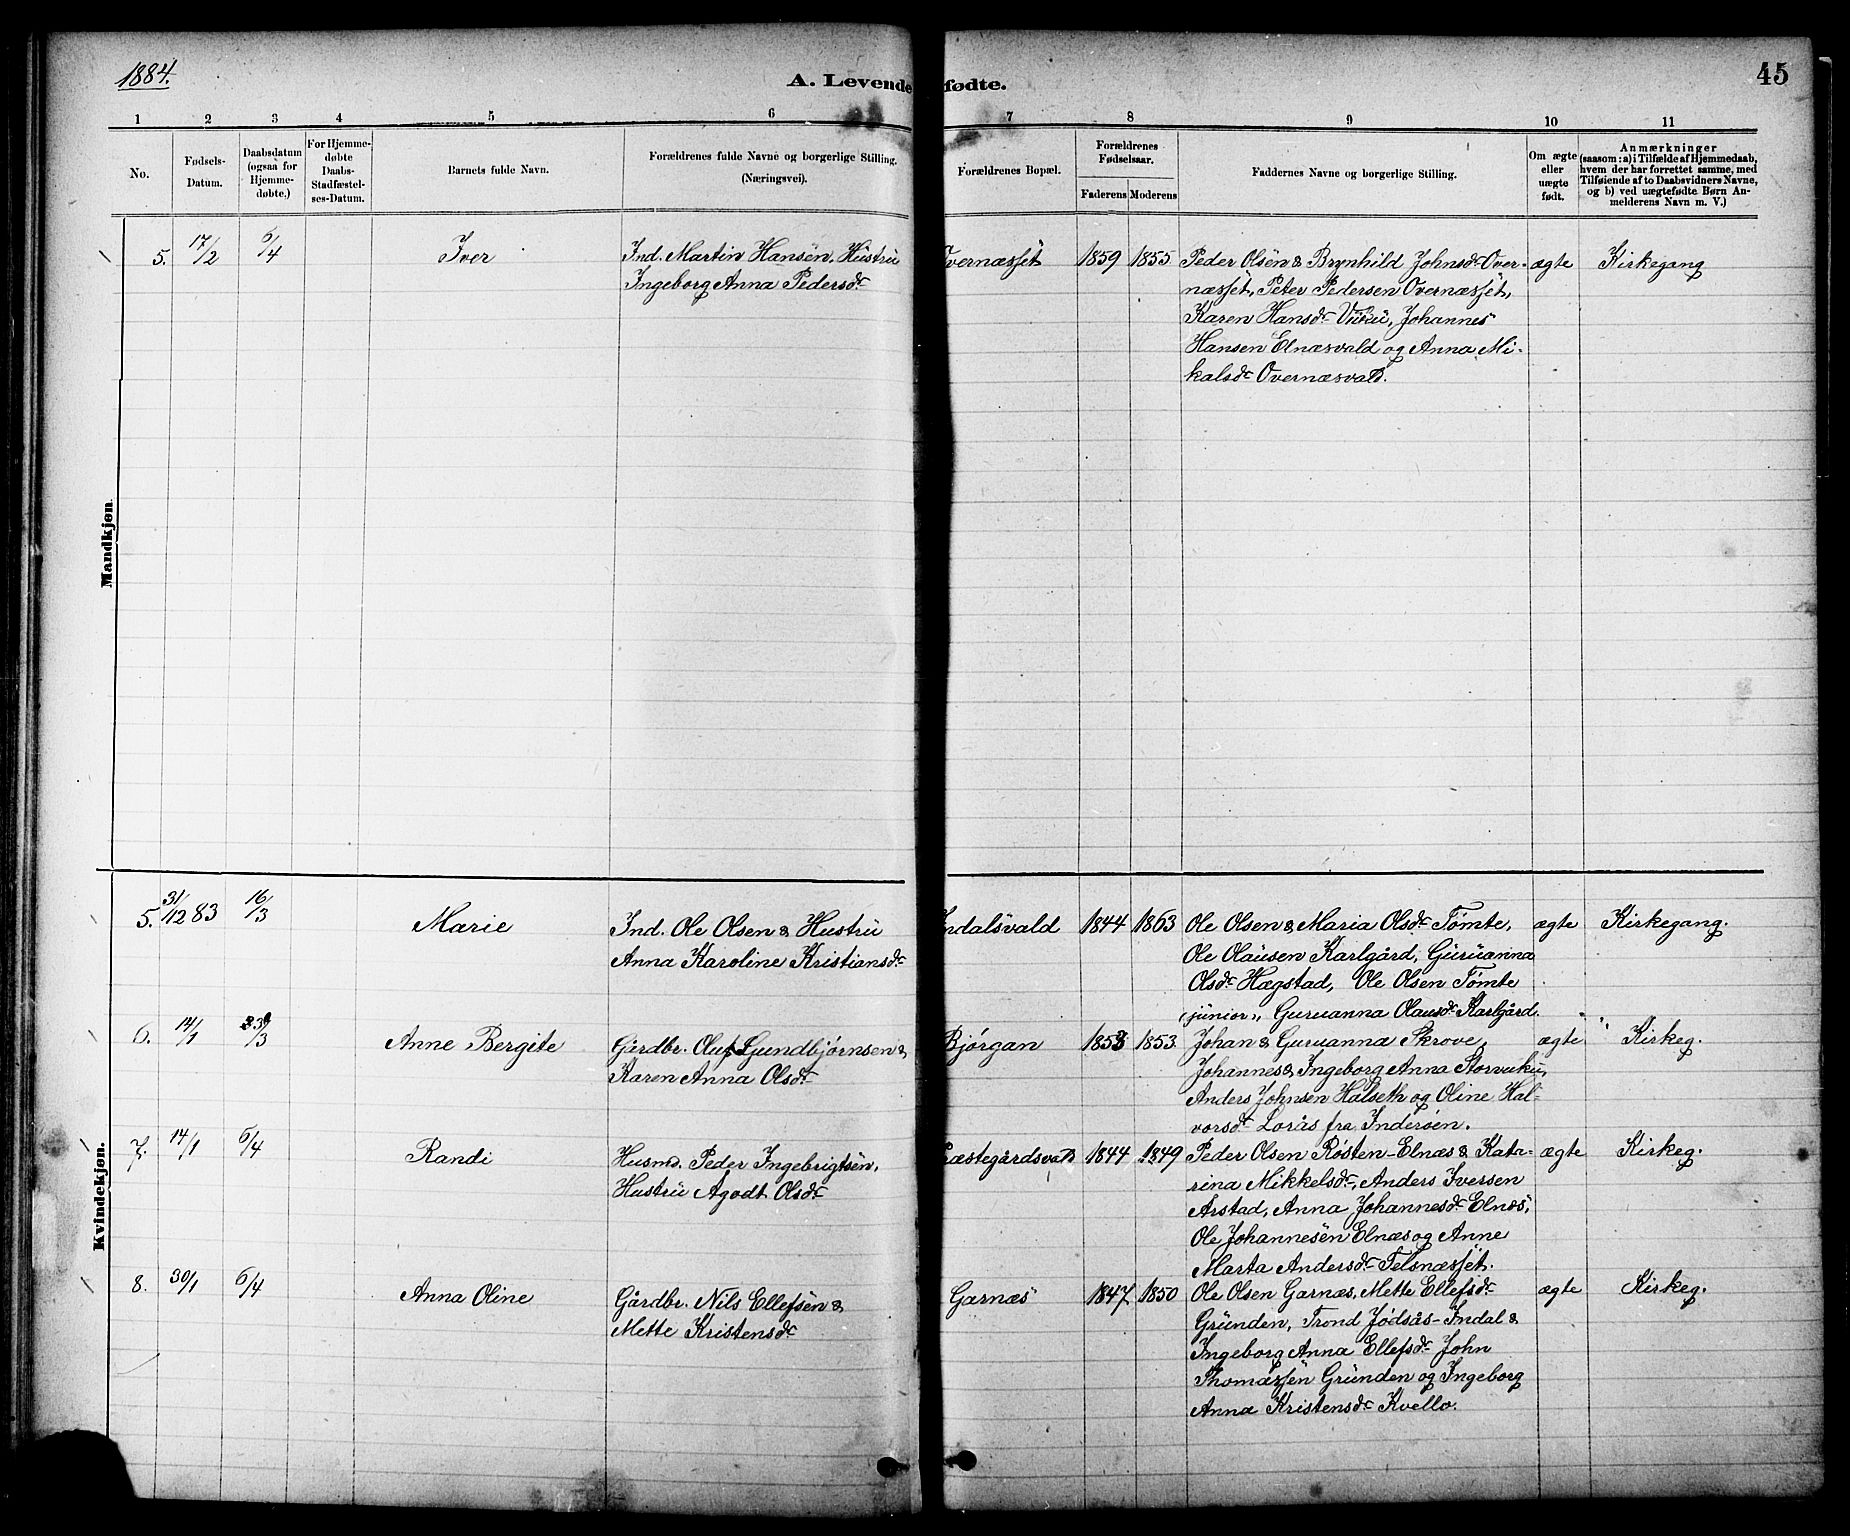 1884.
A. Levende fødte.
45
1 2 3 4 5 6 7 8 9 10 11
No.
Fødsels-
Datum.
Daabsdatum
(ogsaa for
Hjemme-
døbte.)
For Hjemme-
døbte
Daabs-
Stadfæstel-
ses-Datum.
Barnets fulde Navn.
Forældrenes fulde Navne og borgerlige Stilling.
(Næringsvei).
Forældrenes Bopæl.
Forældrenes
Fødselsaar.
Faderens Moderens
Faddernes Navne og borgerlige Stilling.
Om ægte
eller
uægte
født.
Anmærkninger
(saasom: a) i Tilfælde af Hjemmedaab,
hvem der har forrettet samme, med
Tilføiende af to Daabsvidners Navne,
og b) ved uægtefødte Børn An-
melderens Navn m. V.)
Mandkjøn.
5. 17/2 6/4 Iver Ind. Martin Hansen, Hustru Overnæsset 1859 1855 Peder Olsen & Brynhild Johnsdr Over- ægte Kirkegang
Ingeborg Anna Pedersdr næsset, Peter Pedersen Overnæsset,
Karen Hansdr Vuku, Johannes
Hansen Elnæsvald og Anna Mi-
kalsdr Overnæsvald.
Kvindekjøn.
5. 31/12 83 16/3 Marie Ind. Ole Olsen & Hustru Indalsvald 1844 1863 Ole Olsen & Maria Olsdr Tømte, ægte Kirkegang.
Anna Karoline Kristiansdr Ole Olausen Karlgård, Guruanna
Olsdr Hægstad, Ole Olsen Tømte
"junior", Guruanna Olausdr Karlgård.
6. 14/1 23/3 Anne Bergite Gårdbr. Oluf Gundbjørnsen & Bjørgan 1853 1853 Johan & Guruanna Skrove, ægte Kirkeg.
Karen Anna Olsdr Johannes & Ingeborg Anna Storvuku,
Anders Johnsen Halseth og Oline Hal-
vorsdr Lorås fra Inderøen.
7. 14/1 6/4 Randi Husmd. Peder Ingebrigtsen, Præstegårdsvald 1844 1849 Peder Olsen Røsten-Elnæs & Kata- ægte Kirkeg.
Hustru Agodt Olsdr rina Mikkelsdr, Anders Iversen
Årstad, Anna Johannesdr Elnæs,
Ole Johannesen Elnæs og Anne
Marta Andersdr Felsnæsset.
8. 30/1 6/4 Anna Oline Gårdbr. Nils Ellefsen & Garnæs 1847 1850 Ole Olsen Garnæs, Mette Ellefsdr ægte Kirkeg.
Mette Kristensdr Grunden, Trond Jødsås-Indal &
Ingeborg Anna Ellefsdr John
Thomassen Grunden og Ingeborg
Anna Kristensdr Kvello.